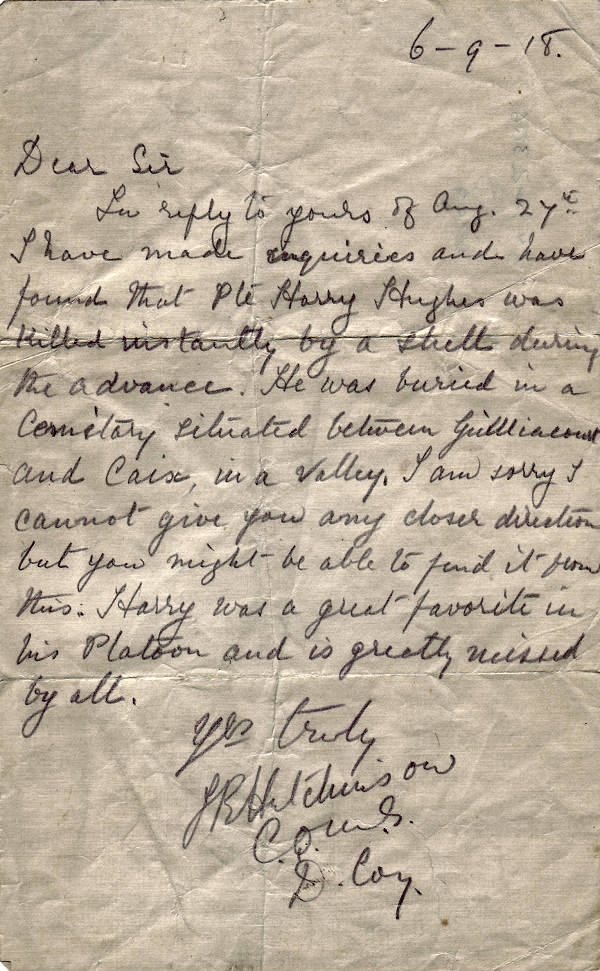 6-9-18.
Dear Sir
In reply to yours of Aug. 27th
I have made enquiries and have
found that Pte Harry Hughes was
killed instantly by a shell during
the advance. He was buried in a
Cemetary situated between
and Caix, in a valley. I am sorry I
cannot give you any closer direction
but you might be able to find it from
this. Harry was a great favorite in
his Platoon and is greatly missed
by all.
Yrs truly
Hutchinson
C.Q.M.S.
D. Coy.